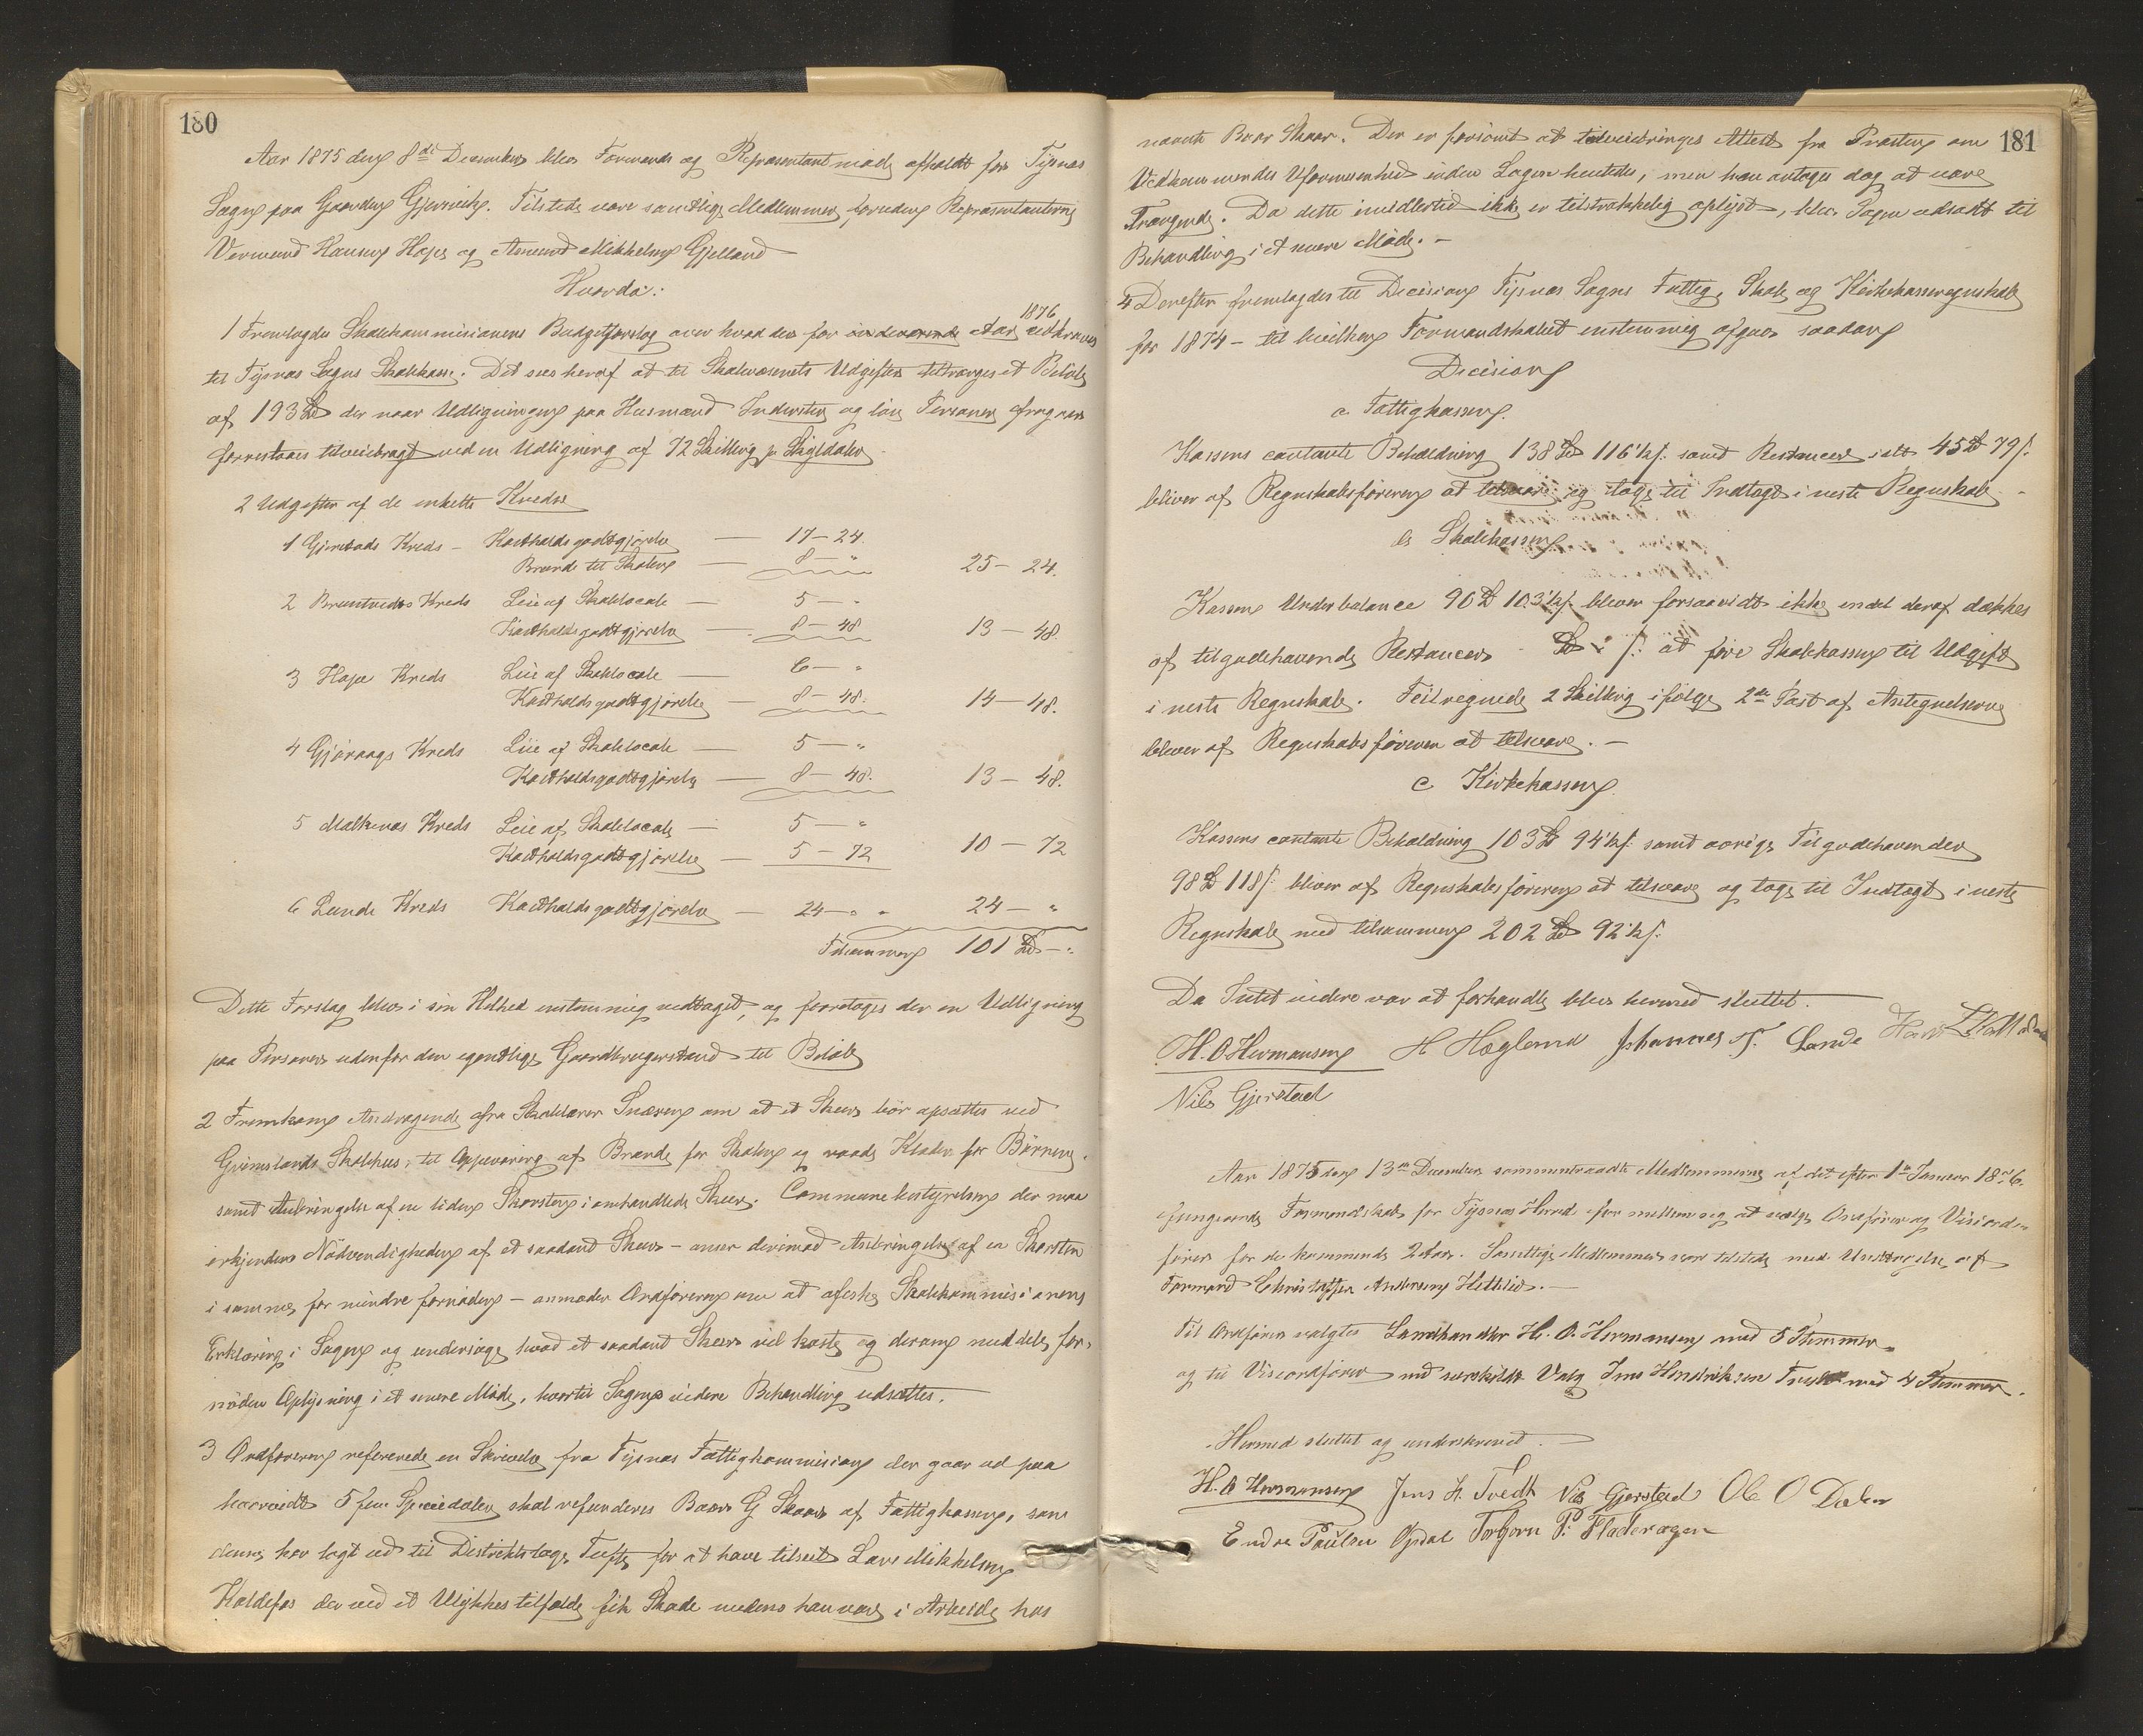 180
Aar 1875 den 8de December blev Formands og Repræsentantmøde afholdt for Tysnæs
Sogn paa Gaarden Gjerevik. Tilstede vare samtlige Medlemmer foruden Repræsentanterne
Vermund Hansen Hope og Amund Mikkelsen Gjelland
Hvorda:
1 Fremlagdes Skolekommissionens Budgetforslag over hvad der for indeværende Aar 1876 udkræves
til Tysnæs Sogns Skolekasse. Det sees heraf at til Skolevæsenets Udgifter tiltrænges et Beløb
af 193 Spd der naar Udligningen paa Husmænd Inderster og løse Personer fragaar
formenes tilveiebragt ved en Udligning af 72 Skilling pr Skyldaler
2 Udgifter af de enkelte Kredse
1 Gjerstads Kreds – Kostholdsgodtgjørelse — 17 – 24
Brænde til Skolen — 8 – " 25 – 24.
2 Bruntveds Kreds Leie af Skolelocale — 5 – "
Kostholdsgodtgjørelse — 8 – 48 13 – 48.
3 Hope Kreds Leie af Skolelocale — 6 – "
Kostholdsgodtgjørelse — 8 – 48. 14 – 48.
4 Gjøraags Kreds Leie af Skolelocale — 5 – "
Kostholdsgodtgjørelse — 8 – 48. 13 – 48.
5 Malkenes Kreds Leie af Skolelocale — 5 – "
Kostholdsgodtgjørelse — 5 – 72 10 – 72
6 Lunde Kreds Kostholdsgodtgjørelse — 24 – " 24 – "
Tilsammen 101 Spd – "
Dette Forslag blev i sin Helhed enstemmig vedtaget, og foretages der en Udligning
paa Personer udenfor den egentlige Gaardbrugerstand til Beløb
2 Fremkom Andragende fra Skolelærer Snaren om at et Skur bør opsættes ved
Grimslands Skolehus, til Opbevaring af Brænde for Skolen og vaade Klæder for Børnene.
samt Anbringelse af en liden Skorsten i omhandlede Skur. Communebestyrelsen der maa
erkjende Nødvendigheden af et saadant Skur – anser derimod Anbringelse af en Skorsten
i samme for mindre fornøden – anmoder Ordføreren om at afæske Skolekommissionens
Erklæring i Sagen og undersøge hvad et saadant Skur vil koste og derom meddele for-
nøden Oplysning i et senere Møde, hvortil Sagens videre Behandling udsættes.
3 Ordføreren refererede en Skrivelse fra Tysnæs Fattigkommission der gaar ud paa
hvorvidt 5 fem Speciedaler skal refunderes Baar G Skaar af Fattigkassen, som
denne har lagt ud til Distriktslæge Tufte for at have tilseet Lars Mikkelsen
Koldefos der ved et Ulykkestilfælde fik Skade medens han var i Arbeide hos
181
nævnte Baar Skaar. Der er forsømt at tilveiebringes Attest fra Præsten om
Vedkommendes Uformuenhed inden Lægen hentedes, men han antages dog at være
Trængende. Da dette imidlertid ikke er tilstrækkelig oplyst, blev Sagen udsadt til
Behandling i et senere Møde. –
4 Derefter fremlagdes til Decision Tysnæs Sogns Fattig, Skole og Kirkekasseregnskab
for 1874 – til hvilken Formandskabet enstemmig afgav saadan
Decision
a Fattigkassen.
Kassens contante Beholdning 138 Spd 116½ s. samt Restancer ialt 45 Spd 79 s.
bliver af Regnskabsføreren at tilsvare og tage til Indtægt i neste Regnskab
b Skolekassen
Kassens Underbalance 90 Spd 103½ s. bliver forsaavidt ikke endel deraf dækkes
af tilgodehavende Restancer Spd " s. at føre Skolekassen til Udgift
i neste Regnskab. Feilregnede 2 Skilling ifølge 2den Post af Antegnelserne
bliver af Regnskabsføreren at tilsvare. –
c Kirkekassen
Kassens contante Beholdning 103 Spd 94½ s. samt øvrige Tilgodehavender
98 Spd 118 s. bliver af Regnskabsføreren at tilsvare og tage til Indtægt i neste
Regnskab med tilsammen 202 Spd 92½ s.
Da Intet videre var at forhandle blev hermed sluttet.
H. O Hermansen H Høglund Johannes T. Lande
Nils Gjerstad
Aar 1875 den 13de December sammentraadte Medlemmerne af det efter 1ste Januar 1876.
fungerende Formandskab for Tysnæs Herred for mellem sig at vælge Ordfører og Viseord-
fører for de kommende 2 Aar. Samtlige Medlemmer var tilstede med Undtagelse af
Formand Christoffer Andersen Hetleid. –
Til Ordfører valgtes Landhandler H. O. Hermansen med 5 Stemmer
og til Viseordfører ved særskildt Valg Jens Hendriksen Tvedt med 4 Stemmer.
Hermed sluttet og underskrevet. –
H. O Hermansen Jens H. Tvedt Nils Gjerstad Ole O Dalen
Endre Paulsen Opdal Torbjørn P. Fladeragen